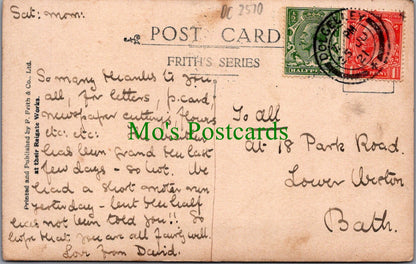 Sat: mom:
DC 2570
POST CARD
FRITH'S SERIES
HALFPENNY
DOLGELLEY
Printed and Published by F. Frith & Co., Ltd.
at their Reigate Works.
So many thanks to you
all, for letters, p.card,
newspaper cutting, flowers
etc: etc:
has been grand the last
few days - so hot. We
had a short
yesterday - but the half
has not been told you!! So
hope that you are all fairly well.
Love from David.
To All
At 18 Park Road.
Lower Weston
Bath.
Mo's Postcards